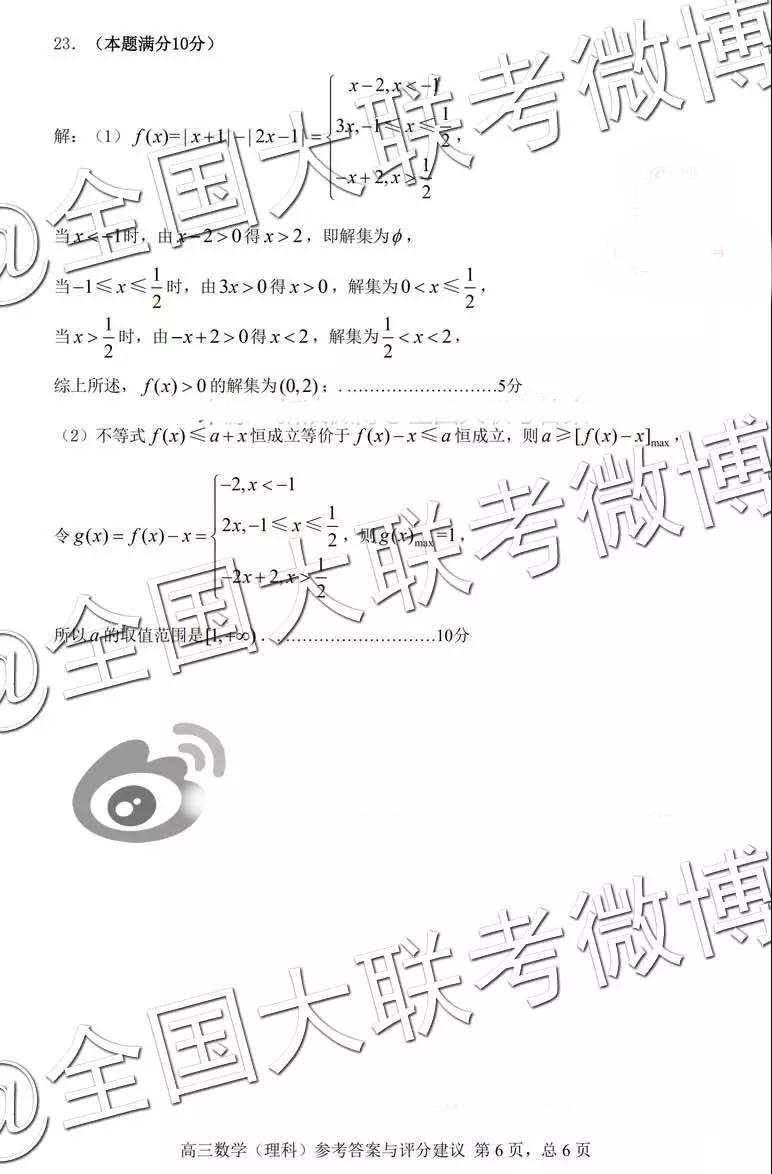 23. （本题满分10分）
解：（1）f(x)=|x+1|-|2x-1|={x-2,x<-1
3x,-1≤x≤1/2，
-x+2,x>1/2
当x<-1时，由x-2>0得x>2，即解集为ϕ，
当-1≤x≤1/2时，由3x>0得x>0，解集为0<x≤1/2，
当x>1/2时，由-x+2>0得x<2，解集为1/2<x<2，
综上所述，f(x)>0的解集为(0,2)；…………………………5分
（2）不等式f(x)≤a+x恒成立等价于f(x)-x≤a恒成立，则a≥[f(x)-x]max，
令g(x)=f(x)-x={-2,x<-1
2x,-1≤x≤1/2，则g(x)max=1，
-2x+2,x>1/2
所以a的取值范围是[1,+∞)．…………………………10分
@全国大联考微博
@全国大联考微博
@全国大联考微博
高三数学（理科）参考答案与评分建议 第6页，总6页